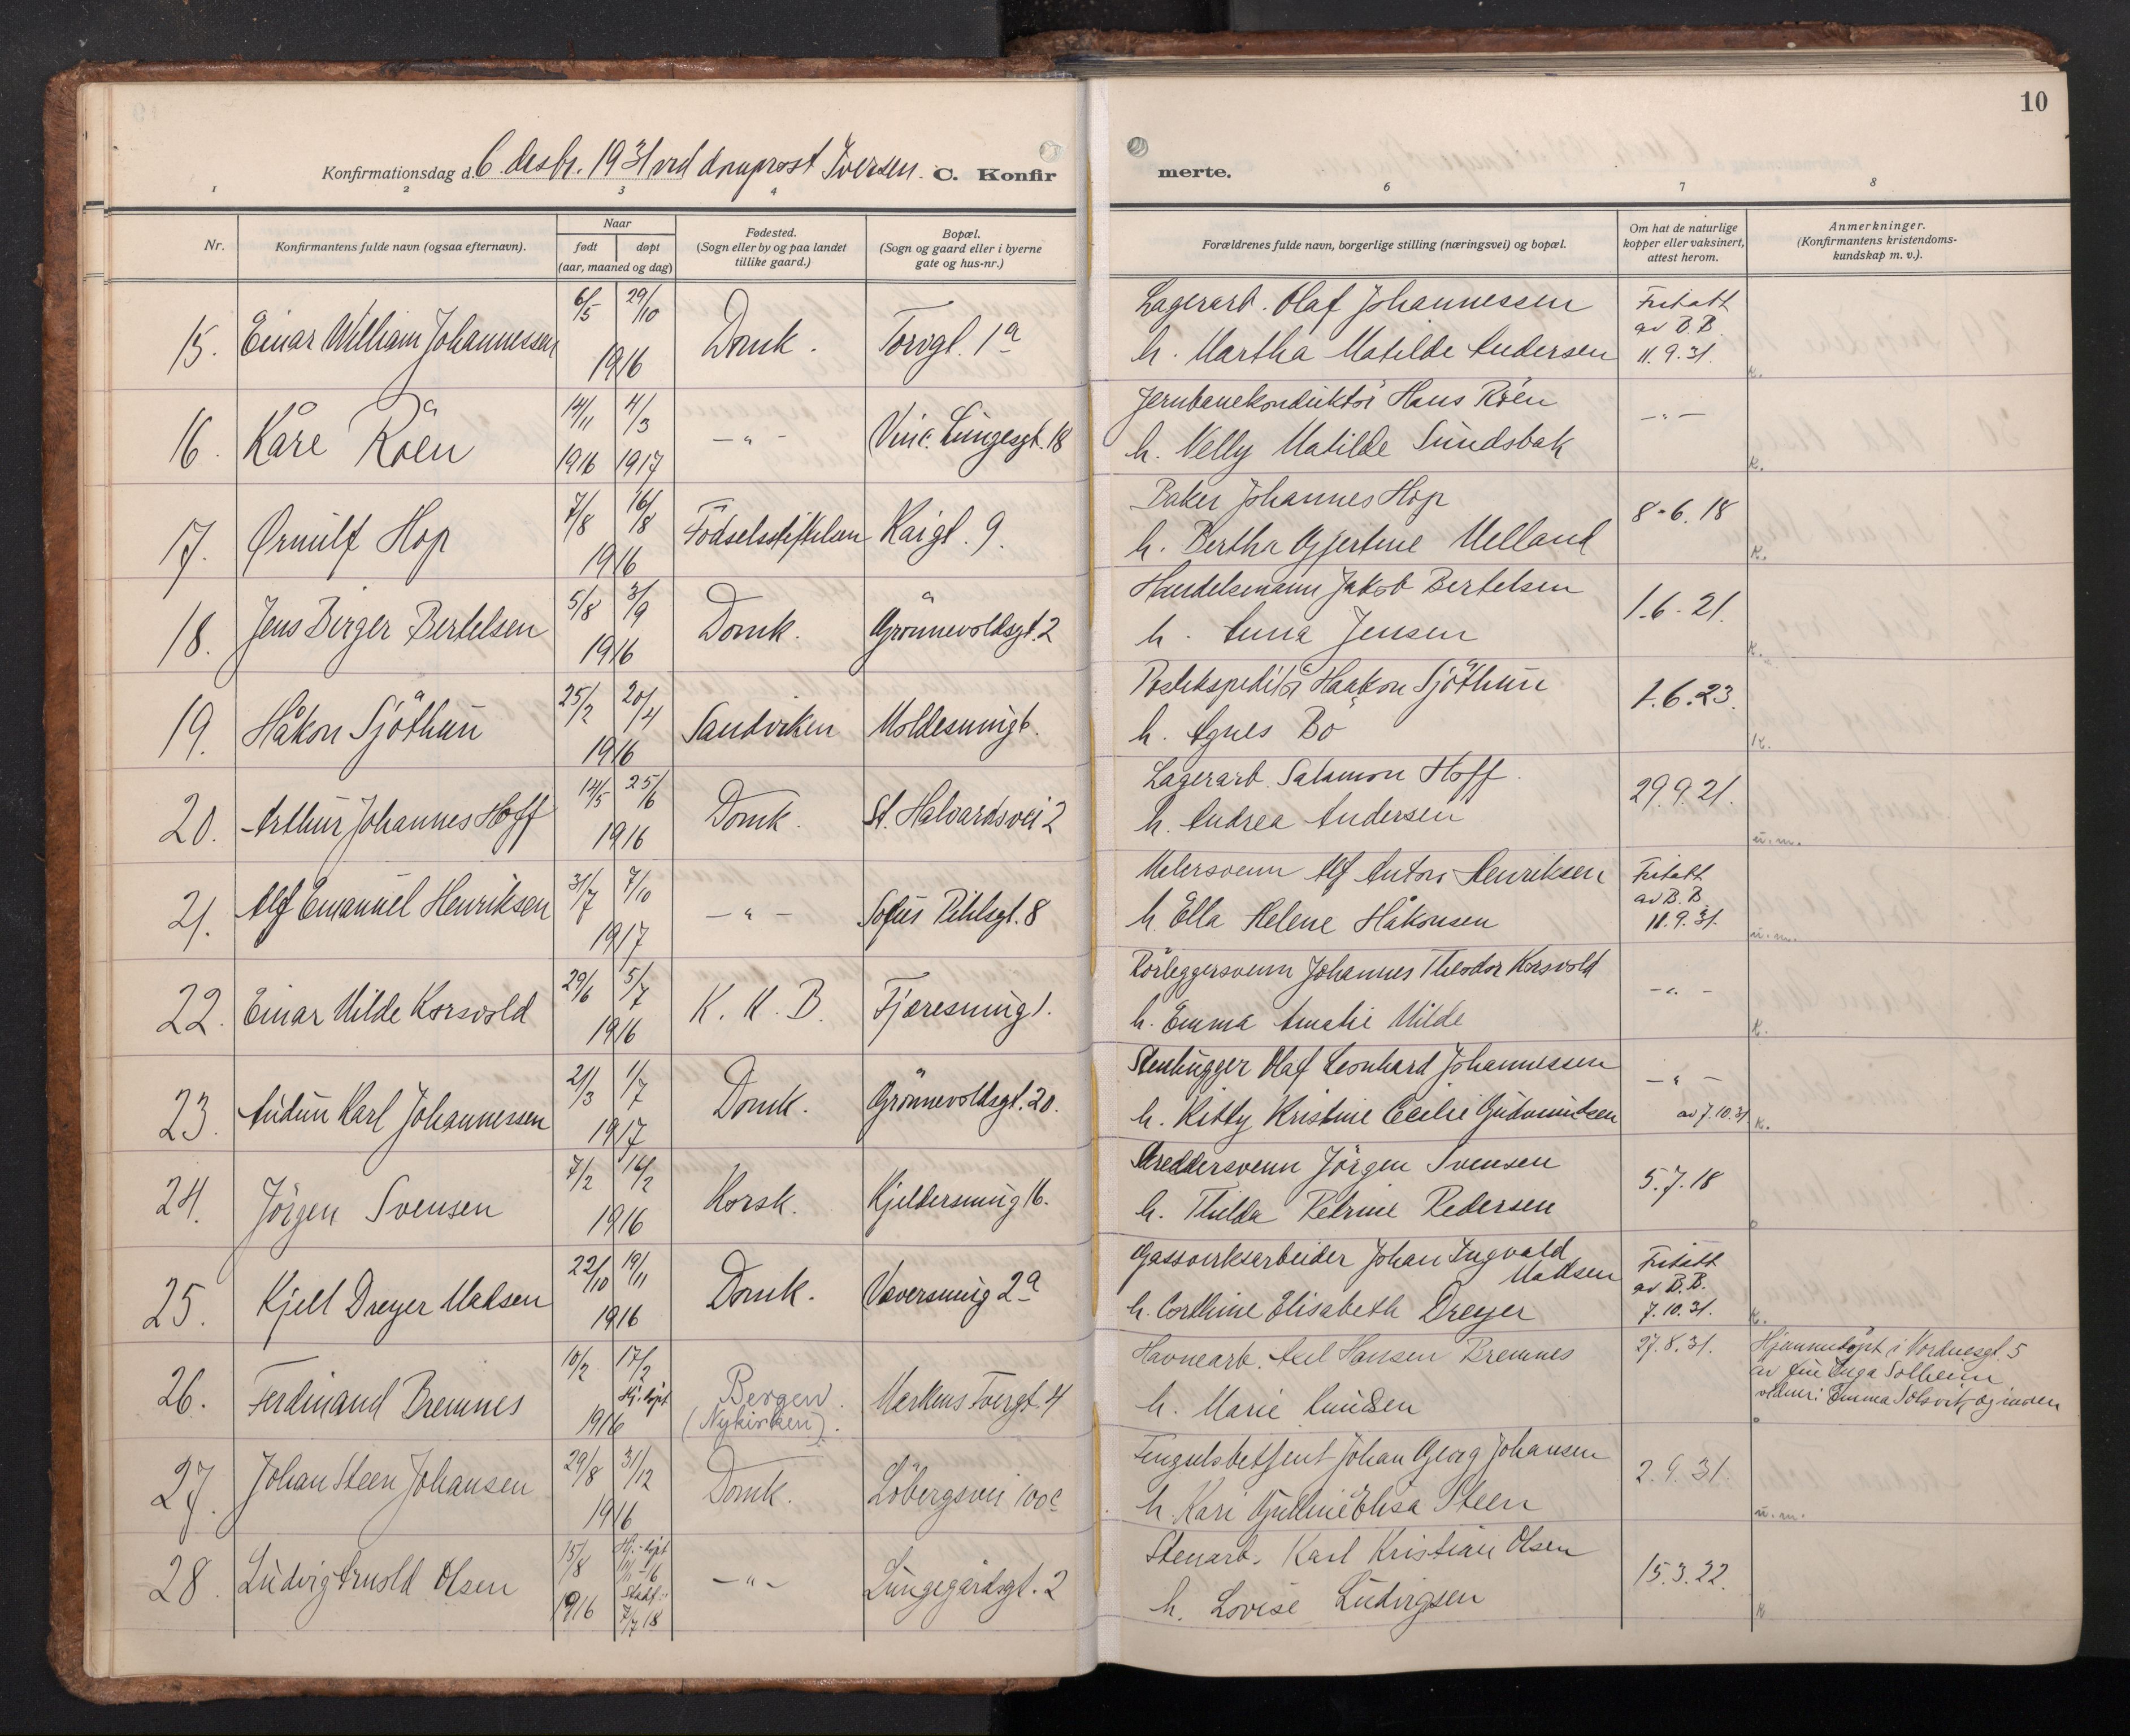 10
Konfirmationsdag d. 6. desbr. 1931 ved domprost Iversen. C. Konfirmerte.
1 2 3 4 6 7 8
Nr. Konfirmantens fulde navn (ogsaa efternavn). Naar født døpt (aar, maaned og dag) Fødested. (Sogn eller by og paa landet tillike gaard.) Bopæl. (Sogn og gaard eller i byerne gate og hus-nr.) Forældrenes fulde navn, borgerlige stilling (næringsvei) og bopæl. Om hat de naturlige kopper eller vaksinert, attest herom. Anmerkninger. (Konfirmantens kristendomskundskap m. v.).
15. Einar William Johannessen 6/5 29/10 1916 Domk. Torvgt. 1a Lagerarb. Olaf Johannessen Fritatt av B.B. 11.9.31. K.
h. Martha Matilde Andersen
16. Kåre Råen 14/11 1916 4/3 1917 -"- Vinc. Lungesgt. 18 Jernbanekonduktör Hans Röen -"- K.
h. Nelly Matilde Sundsbak
17. Ørnulf Hop 7/8 16/8 1916 Födselsstiftelsen Kaigt. 9. Baker Johannes Hop 8.6.18 K.
h. Bertha Gjertine Melland
18. Jens Birger Bertelsen 5/8 3/9 1916 Domk. Grönnevoldsgt. 2 Handelsmann Jakob Bertelsen 1.6.21. K.
h. Anna Jensen
19. Håkon Sjöthun 25/2 20/4 1916 Sandviken Moldesmug 6. Postekspeditör Haakon Sjöthun 1.6.23. K.
h. Agnes Bö
20. Arthur Johannes Hoff 14/5 25/6 1916 Domk. St. Halvardsvei 2 Lagerarb. Salamon Hoff. 29.9.21. u.m.
h. Andrea Andersen
21. Alf Emanuel Henriksen 31/7 7/10 1917 -"- Sofus Pihlsgt. 8 Malersvenn Alf Anton Henriksen Fritatt av B.B. 11.9.31. u.m.
h. Ella Helene Håkonsen
22. Einar Milde Korsvold 29/6 5/7 1916 K.K.B. Fjæresmug 1. Rörleggersvenn Johannes Theodor Korsvold -"- K.
h. Emma Amalie Milde
23. Audun Karl Johannessen 21/3 1/7 1917 Domk. Grönnevoldsgt. 20. Stenhugger Olaf Leonhard Johannessen -"- av 7.10.31 K.
h. Kitty Kristine Cecilie Gudmundsen
24. Jörgen Svensen 7/2 16/2 1916 Korsk. Kjeldersmug 16. Skreddersvenn Jörgen Svensen 5.7.18
h. Thilda Petrine Pedersen
25. Kjell Dreyer Madsen 22/10 19/11 1916 Domk. Vaversmug 2a Gassverksarbeider Johan Ingvald Madsen Fritatt av B.B. 7.10.31. K.
h. Corthine Elisabeth Dreyer
26. Ferdinand Bremnes 10/2 17/2 Hj. döpt 1916 Bergen. (Nykirken). Markens Tvergt. 4 Havnearb. Axel Hansen Bremnes 27.8.31. Hjemmedöpt i Vordnesgt. 5
av Inga Solheim
Emma Solsvik og moren
h. Marie Knudsen
27. Johan Steen Johansen 29/8 31/12 1916 Domk. Löbergsvei 100c Fengselsbetjent Johan Georg Johansen 2.9.31. u.m.
h. Kari Elisa Steen
28. Ludvig Arnold Olsen 15/8 1916 Hj. döpt Stadf. 7/7 18 -"- Lungegårdsgt. 2 Stenarb. Karl Kristian Olsen 15.3.22. K
h. Lovise Ludvigsen